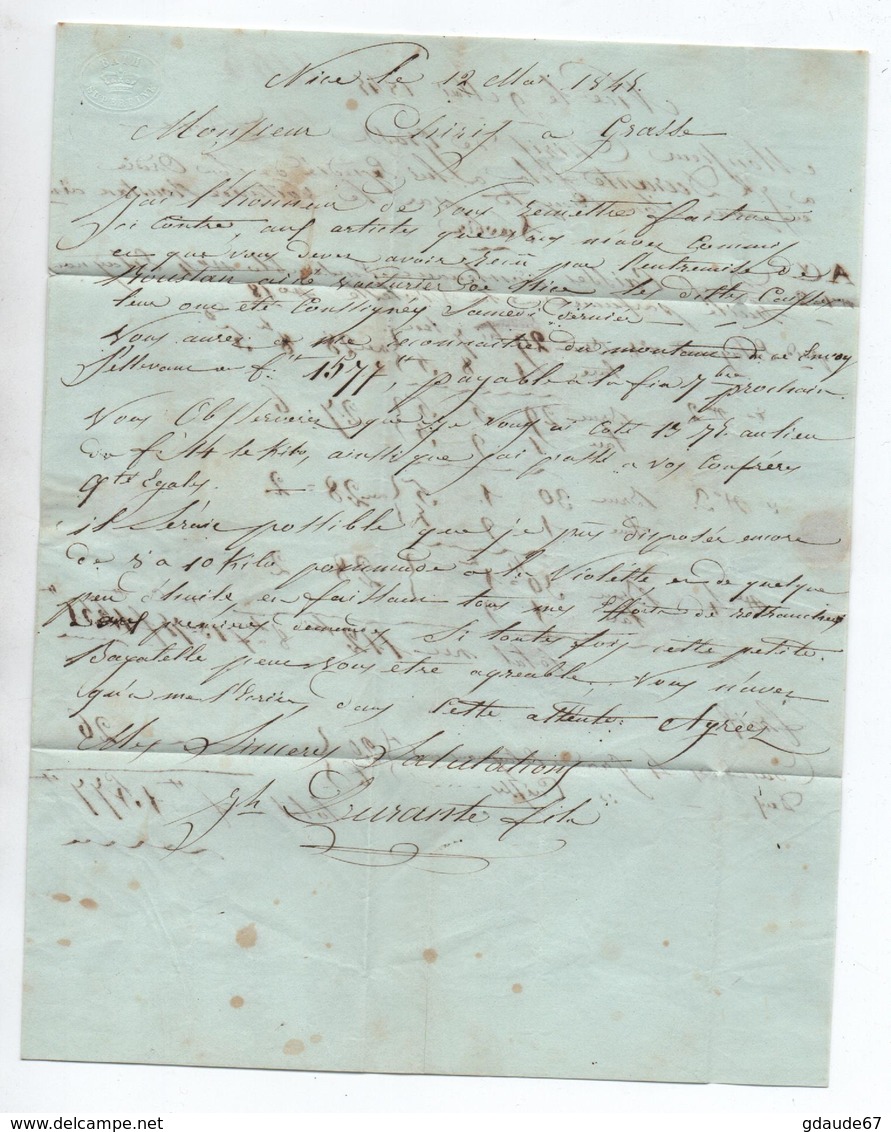 BATH
Nice le 12 Mai 1848.
Monsieur Chiris a Grasse
J'ai l'honneur de vous remettre facture
ci contre, aux artistes que vous m'avez Commis
et que vous devez avoir reçu par l'entremise de
Roustan ainé voiturier de Nice les dittes Caisses
leur ont été Consignés Samedi dernier
Vous aurez a me reconnaitre du montant de ce Envoy
S'ellevant a f. 1577, payable a la fin 7bre prochain.
Vous Observerez que je vous ai Coté 13 75. au lieu
de f. 14 le Kilo, ainsi que j'ai passé a vos Confrères
qtés Egales.
il Serait possible que je puis disposée encore
de 8 a 10 Kilo pommade a la Violette et de quelque
peu d'huile en faissant tous mes Efforts de retrancher
sur premières demandes Si toute fois cette petite
Bagatelle peut vous etre agreable, Vous n'avez
qu'a me l'Ecrire, dans cette attente. Agréez
Mes Sinceres Salutations
Jh Durante fils
gdaude67